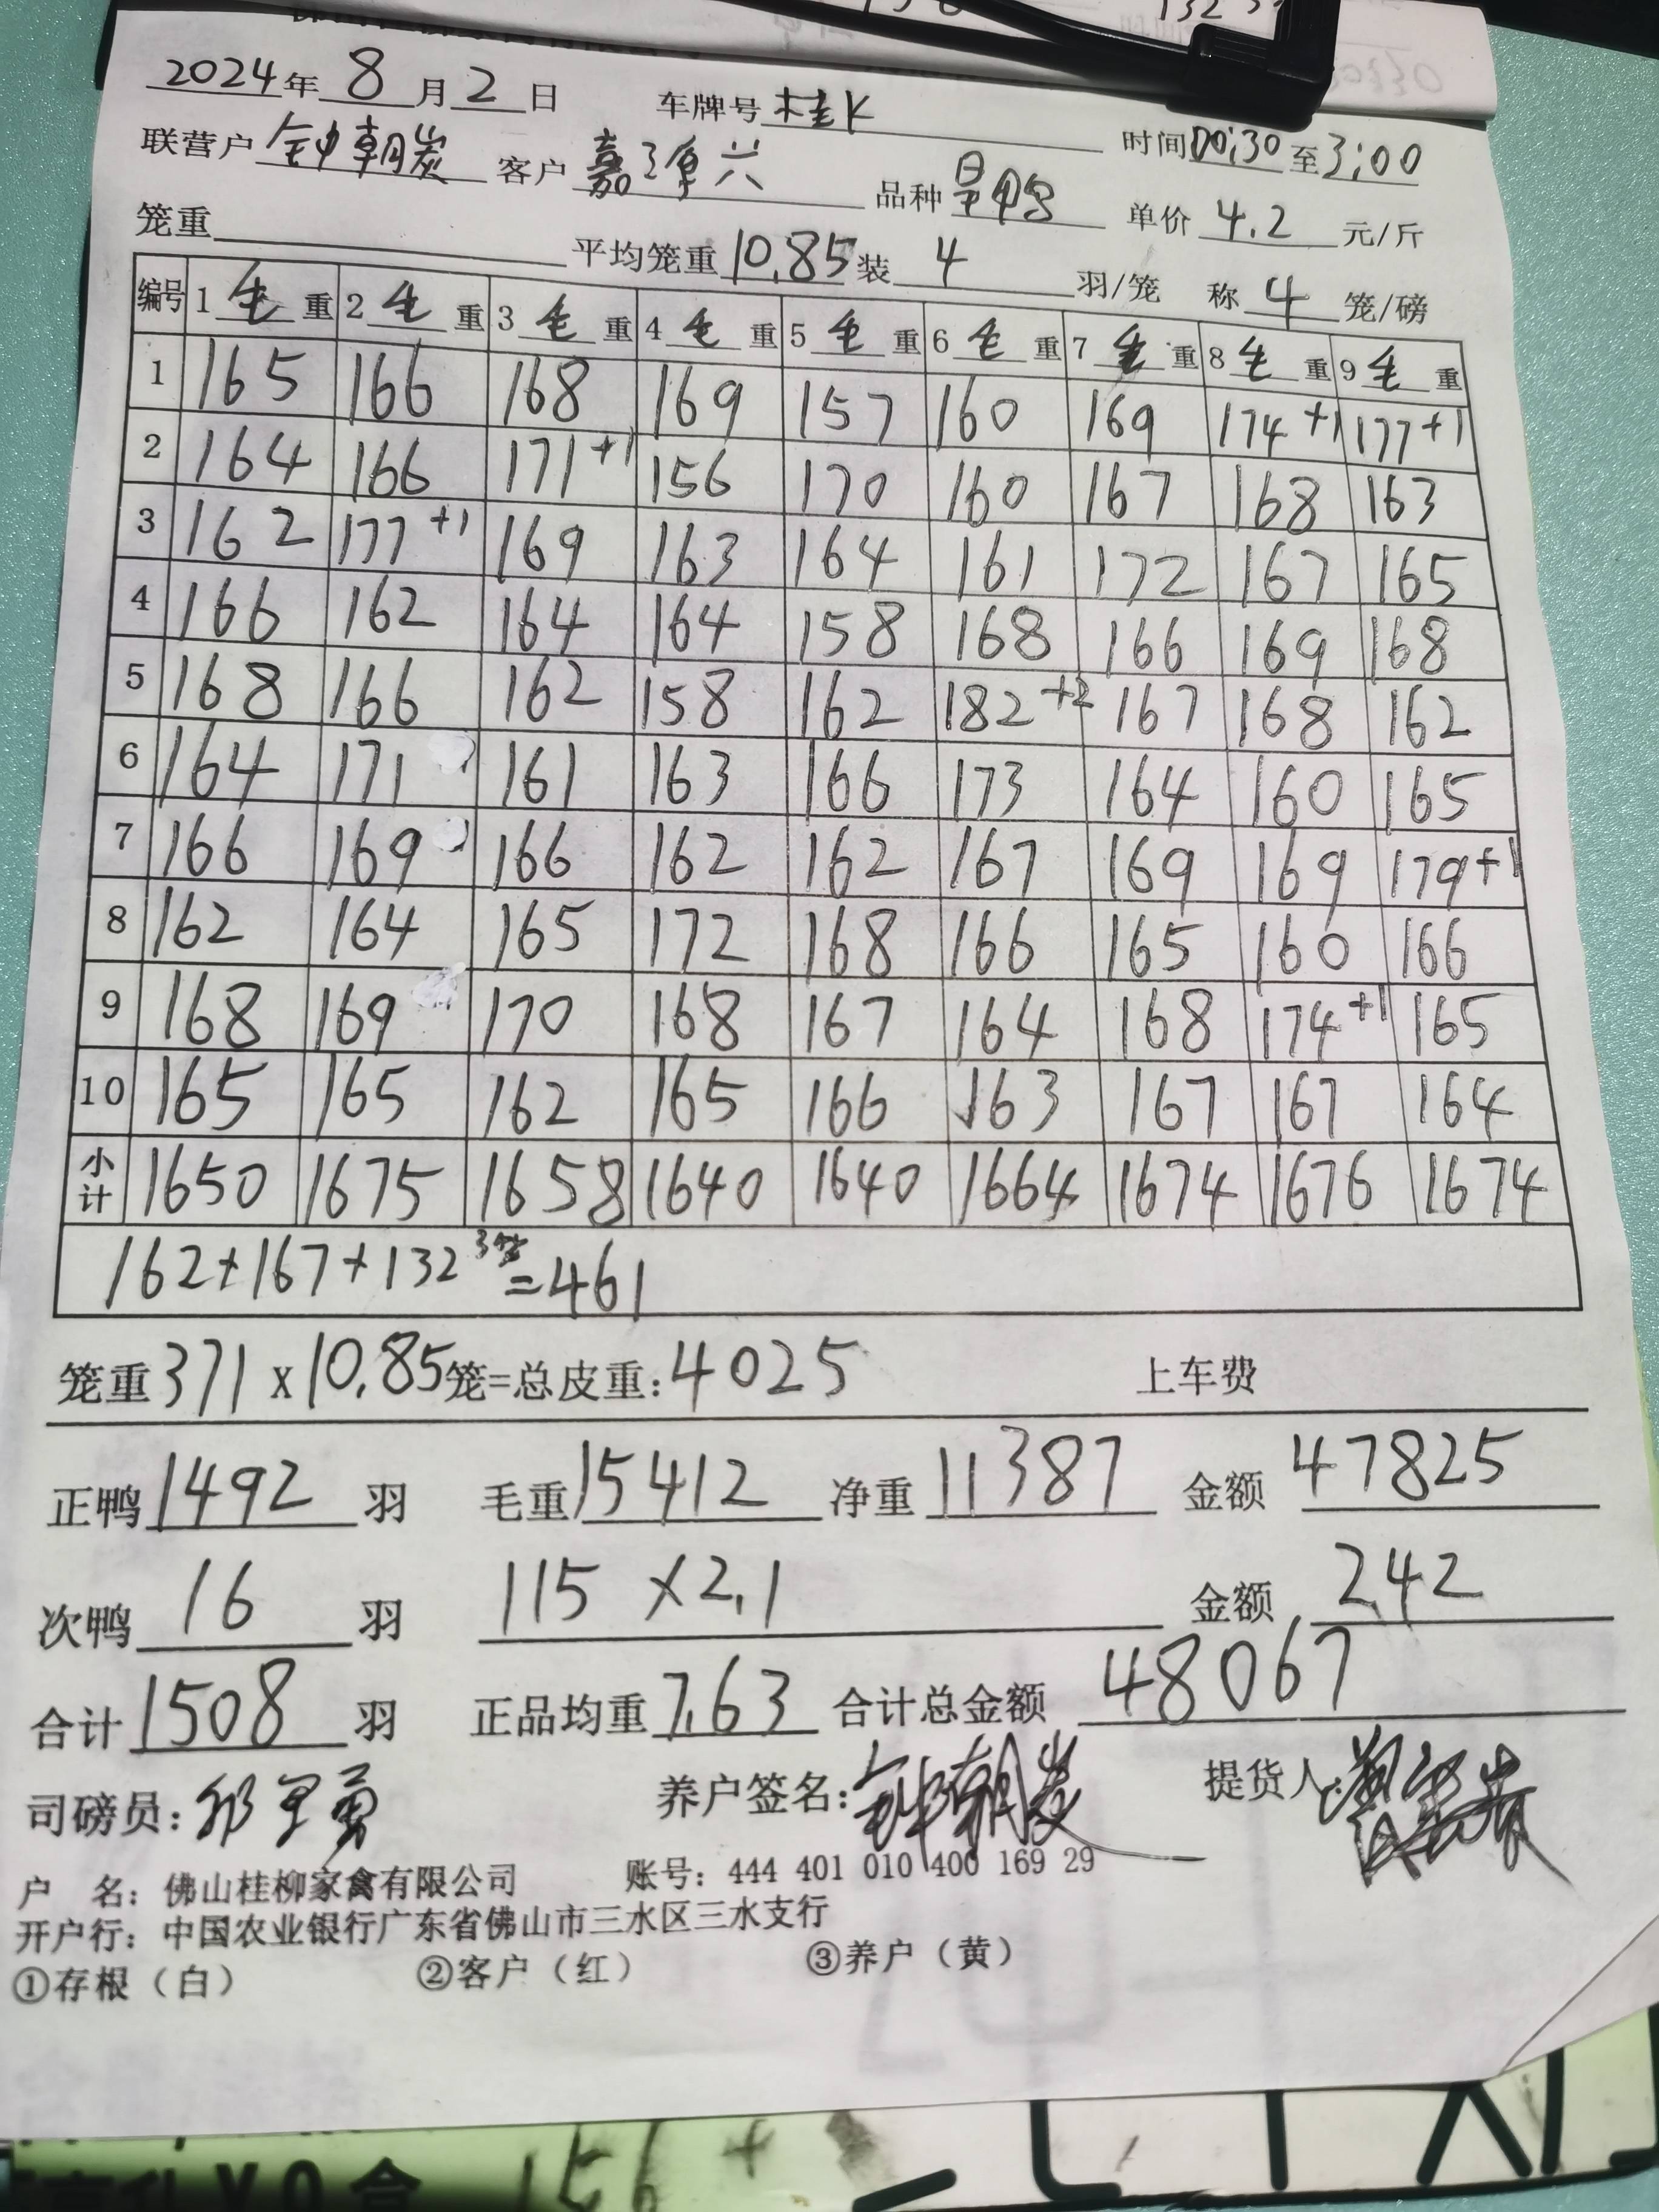 2024年 8 月 2 日 车牌号 桂K
时间 00:30 至 3:00
联营户 钟朝炭 客户 嘉泽六 品种 旱鸭 单价 4.2 元/斤
笼重 平均笼重 10.85 装 4 羽/笼 称 4 笼/磅
编号 1 毛 重 2 毛 重 3 毛 重 4 毛 重 5 毛 重 6 毛 重 7 毛 重 8 毛 重 9 毛 重
1 165 166 168 169 157 160 169 174+1 177+1
2 164 166 171+1 156 170 160 167 168 163
3 162 177+1 169 163 164 161 172 167 165
4 166 162 164 164 158 168 166 169 168
5 168 166 162 158 162 182+2 167 168 162
6 164 171 161 163 166 173 164 160 165
7 166 169 166 162 162 167 169 169 179+1
8 162 164 165 172 168 166 165 160 166
9 168 169 170 168 167 164 168 174+1 165
10 165 165 162 165 166 163 167 167 164
小计 1650 1675 1658 1640 1640 1664 1674 1676 1674
162+167+132 3笼 =461
笼重 371 x 10.85 笼=总皮重: 4025 上车费
正鸭 1492 羽 毛重 15412 净重 11387 金额 47825
次鸭 16 羽 115 ×2.1 金额 242
合计 1508 羽 正品均重 7.63 合计总金额 48067
司磅员: 养户签名: 钟朝炭 提货人:
户 名: 佛山桂柳家禽有限公司 账号: 444 401 010 400 169 29
开户行: 中国农业银行广东省佛山市三水区三水支行
①存根（白） ②客户（红） ③养户（黄）
156 +